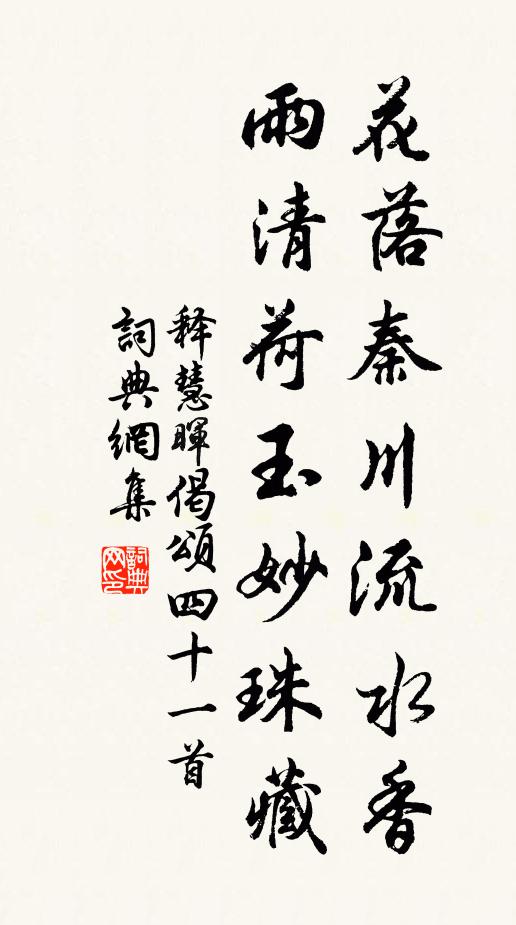 花落秦川流水香
雨清荷玉妙珠藏
释慧暉偈頌四十一首
詞典網集
詞典網印